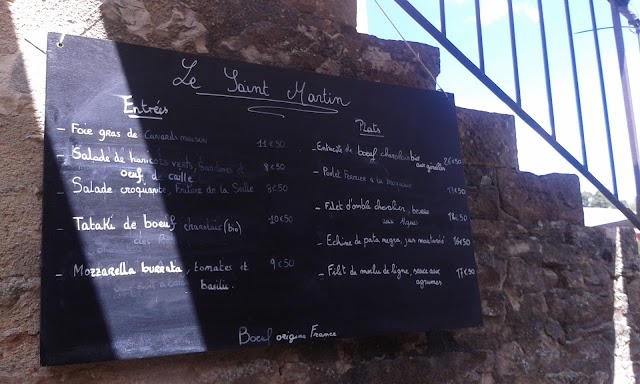 Le Saint Martin
Entrées
- Foie gras de Canard maison 11€50
- Salade de haricots verts, et 8€50
oeuf de caille
- Salade croquante, de la Salle 8€50
- Tataki de boeuf charolais (bio) 10€50
- Mozzarella burrata, tomates et 9€50
basilic
Plats
- Entrecôte de boeuf charolais bio
aux girolles
- Poulet Fermier à la
- Filet d'omble chevalier,
aux Algues
- Echine de pata negra, jus 16€50
- Filet de merlu de ligne, sauce aux 17€50
agrumes
Boeuf origine France